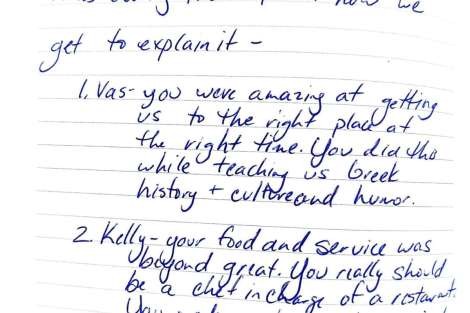 now we
get to explain it -
1. Vas- you were amazing at getting
us to the right place at
the right time. You did this
while teaching us Greek
history + culture and humor.
2. Kelly - your food and service was
beyond great. You really should
be a chef in charge of a restaurant.